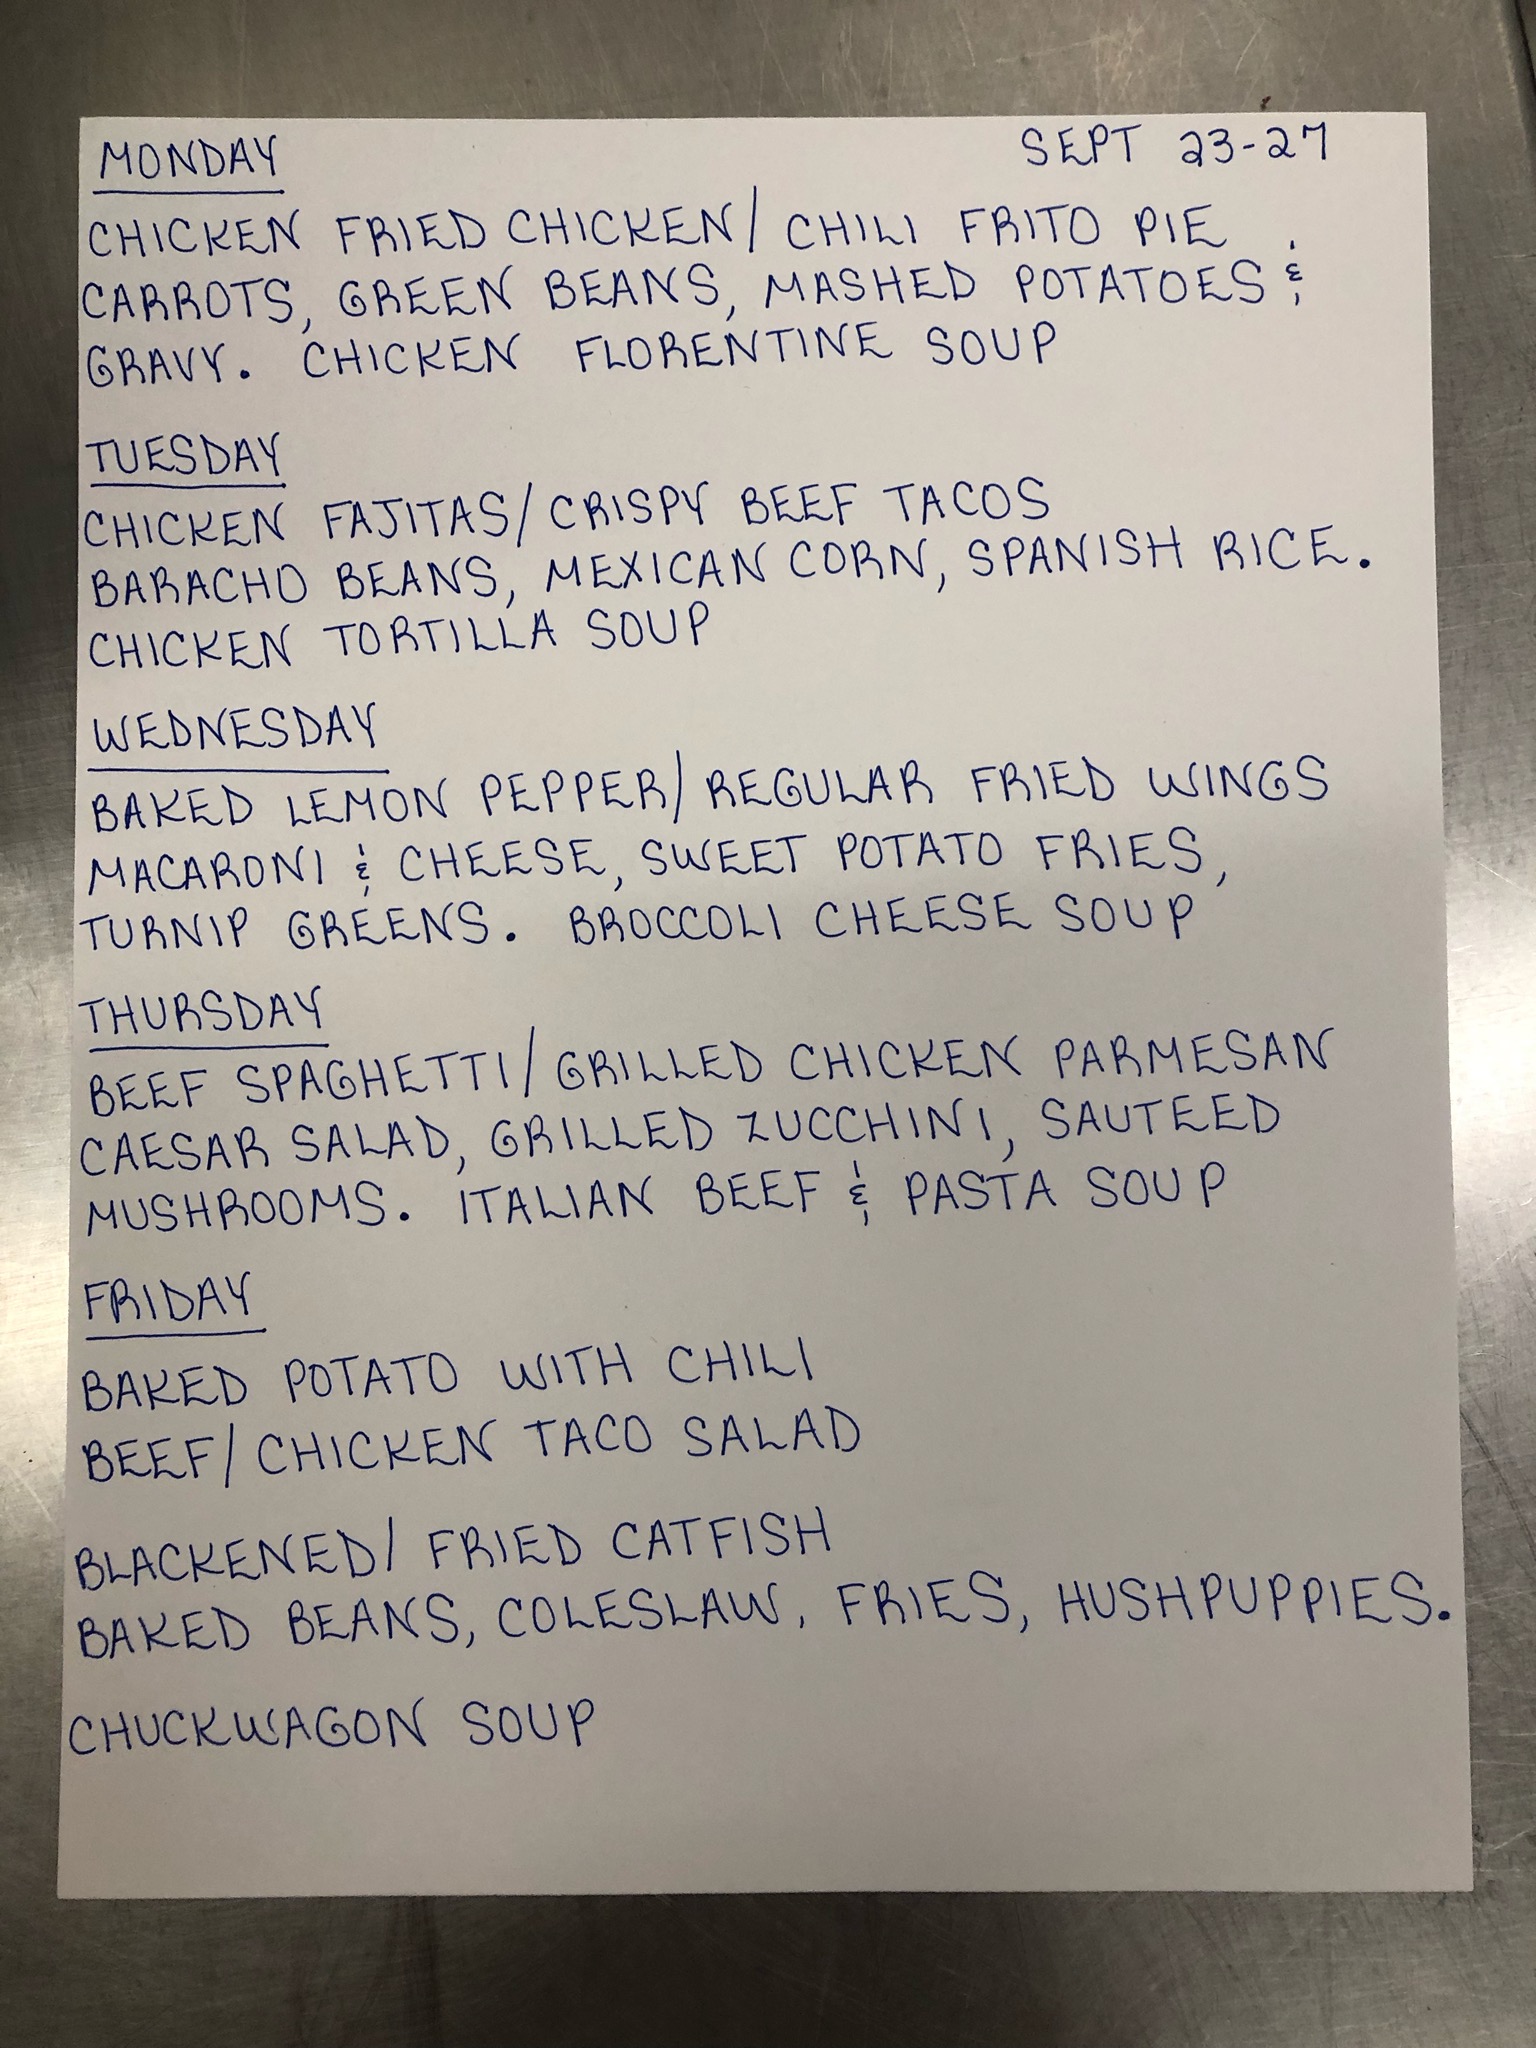 MONDAY
SEPT 23-27
CHICKEN FRIED CHICKEN/ CHILI FRITO PIE
CARROTS, GREEN BEANS, MASHED POTATOES &
GRAVY. CHICKEN FLORENTINE SOUP
TUESDAY
CHICKEN FAJITAS/CRISPY BEEF TACOS
BARACHO BEANS, MEXICAN CORN, SPANISH RICE.
CHICKEN TORTILLA SOUP
WEDNESDAY
BAKED LEMON PEPPER/REGULAR FRIED WINGS
MACARONI & CHEESE, SWEET POTATO FRIES,
TURNIP GREENS. BROCCOLI CHEESE SOUP
THURSDAY
BEEF SPAGHETTI/GRILLED CHICKEN PARMESAN
CAESAR SALAD, GRILLED ZUCCHINI, SAUTEED
MUSHROOMS. ITALIAN BEEF & PASTA SOUP
FRIDAY
BAKED POTATO WITH CHILI
BEEF/CHICKEN TACO SALAD
BLACKENED/ FRIED CATFISH
BAKED BEANS, COLESLAW, FRIES, HUSHPUPPIES.
CHUCKWAGON SOUP